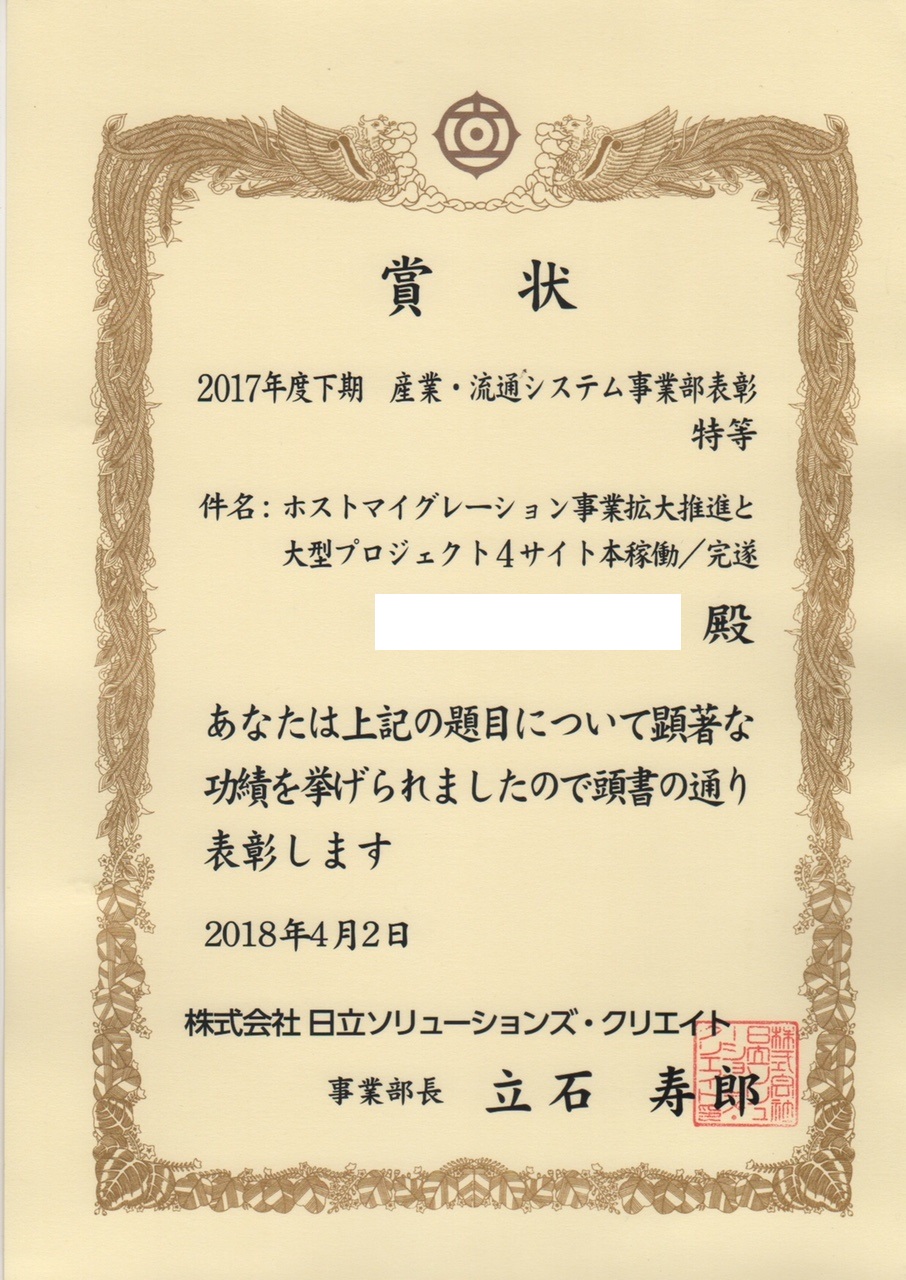 賞状
2017年度下期　産業・流通システム事業部表彰
特等
件名：ホストマイグレーション事業拡大推進と
大型プロジェクト4サイト本稼働／完遂
殿
あなたは上記の題目について顕著な
功績を挙げられましたので頭書の通り
表彰します
2018年4月2日
株式会社 日立ソリューションズ・クリエイト
事業部長　立石　寿郎